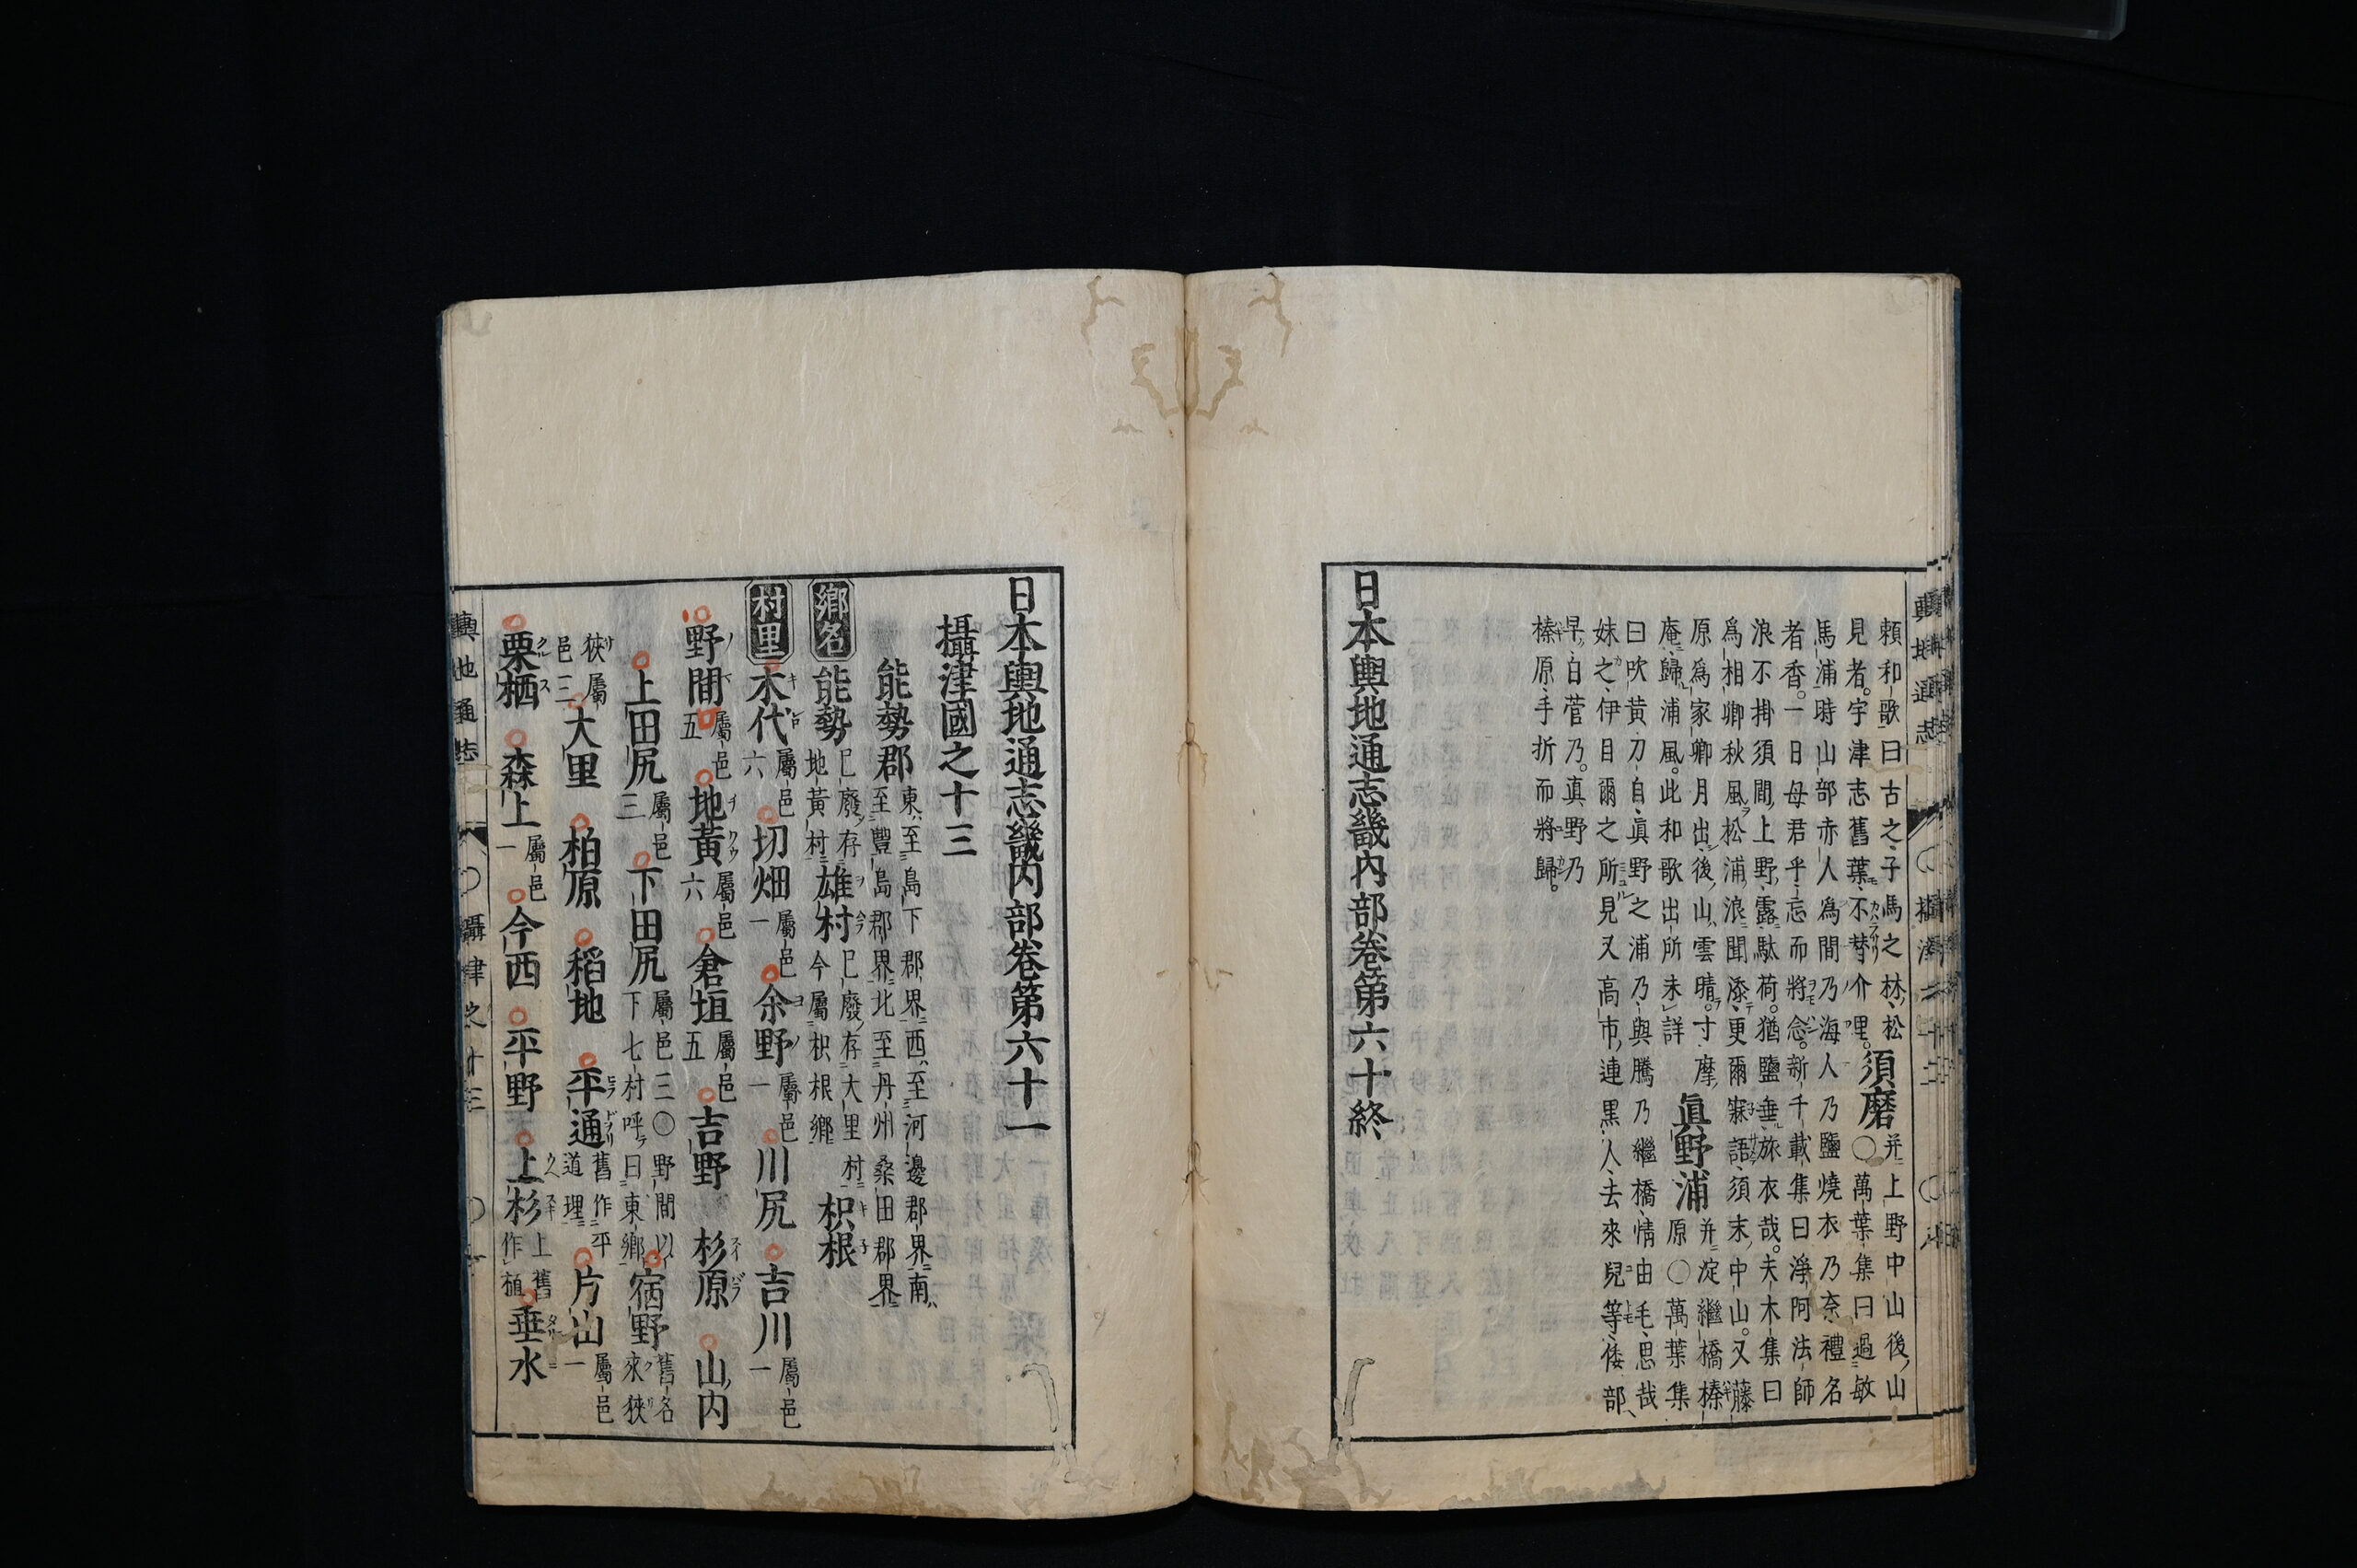 頼和歌曰古之子馬之林松
見者。宇津志舊葉不替介里。
須磨
并上野中山後山
○萬葉集曰過敏
馬浦時山部赤人爲間乃海人乃鹽燒衣乃奈禮名
者香。一日母君乎忘而將念。新千載集曰淨阿法師
浪不掛須間上野露駄荷。猶鹽垂旅衣哉。夫木集曰
爲相卿秋風松浦浪聞添更爾寐語須末中山。又藤
原爲家卿月出後山雲晴。寸摩
庵歸浦風。此和歌出所未詳
眞野浦
并淀繼橋榛
原○萬葉集
曰吹黄刀自眞野之浦乃與騰乃繼橋情由毛思哉
妹之伊目爾之所見又高市連黒人去來兒等倭部
早白菅乃。眞野乃
榛原手折而將歸。
日本輿地通志畿内部卷第六十終
日本輿地通志畿内部卷第六十一
攝津國之十三
能勢郡 東至島下郡界西至河邊郡界南
至豐島郡界北至丹州桑田郡界
鄉名 能勢 已廢存地黃村 雄村 已廢存大里村今屬枳根鄉 枳根
村里 木代 屬邑六 切畑 屬邑一 余野 屬邑一 川尻 吉川 屬邑一
野間 屬邑五 地黃 屬邑六 倉垣 屬邑五 吉野 杉原 山内
上田尻 屬邑三 下田尻 屬邑三○野間以下七村呼曰東鄉 宿野 舊名來狹
狹屬邑三 大里 柏原 稻地 平通 舊作平道理 片山 屬邑一
栗栖 森上 屬邑一 今西 平野 上杉 上舊作植 垂水
輿地通志 ○攝津之十三